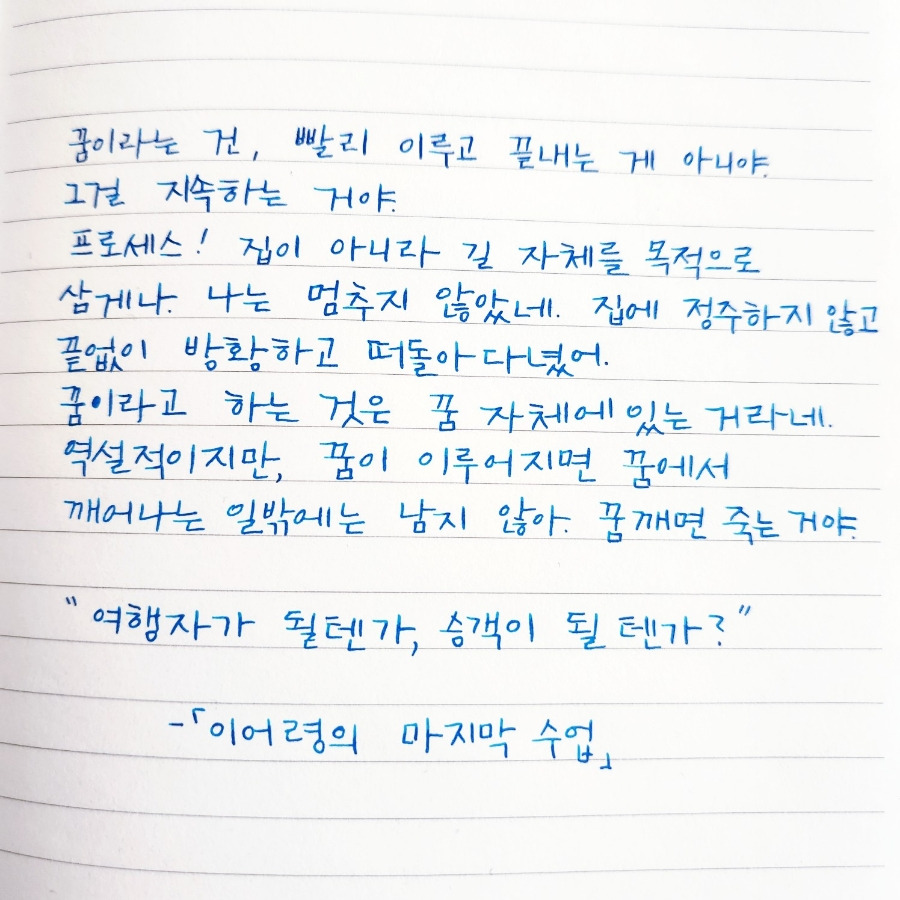 꿈이라는 건, 빨리 이루고 끝내는 게 아니야.
그걸 지속하는 거야.
프로세스! 집이 아니라 길 자체를 목적으로
삼게나. 나는 멈추지 않았네. 집에 정주하지 않고
끝없이 방황하고 떠돌아 다녔어.
꿈이라고 하는 것은 꿈 자체에 있는 거라네.
역설적이지만, 꿈이 이루어지면 꿈에서
깨어나는 일밖에는 남지 않아. 꿈깨면 죽는 거야.
"여행자가 될텐가, 승객이 될 텐가?"
-「이어령의 마지막 수업」